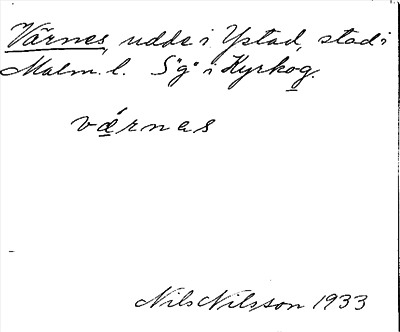 Värnes, udde i Ystad, stad i
Malm. l. S°g° i Kyrkog.
vǽrnas
Nils Nilsson 1933